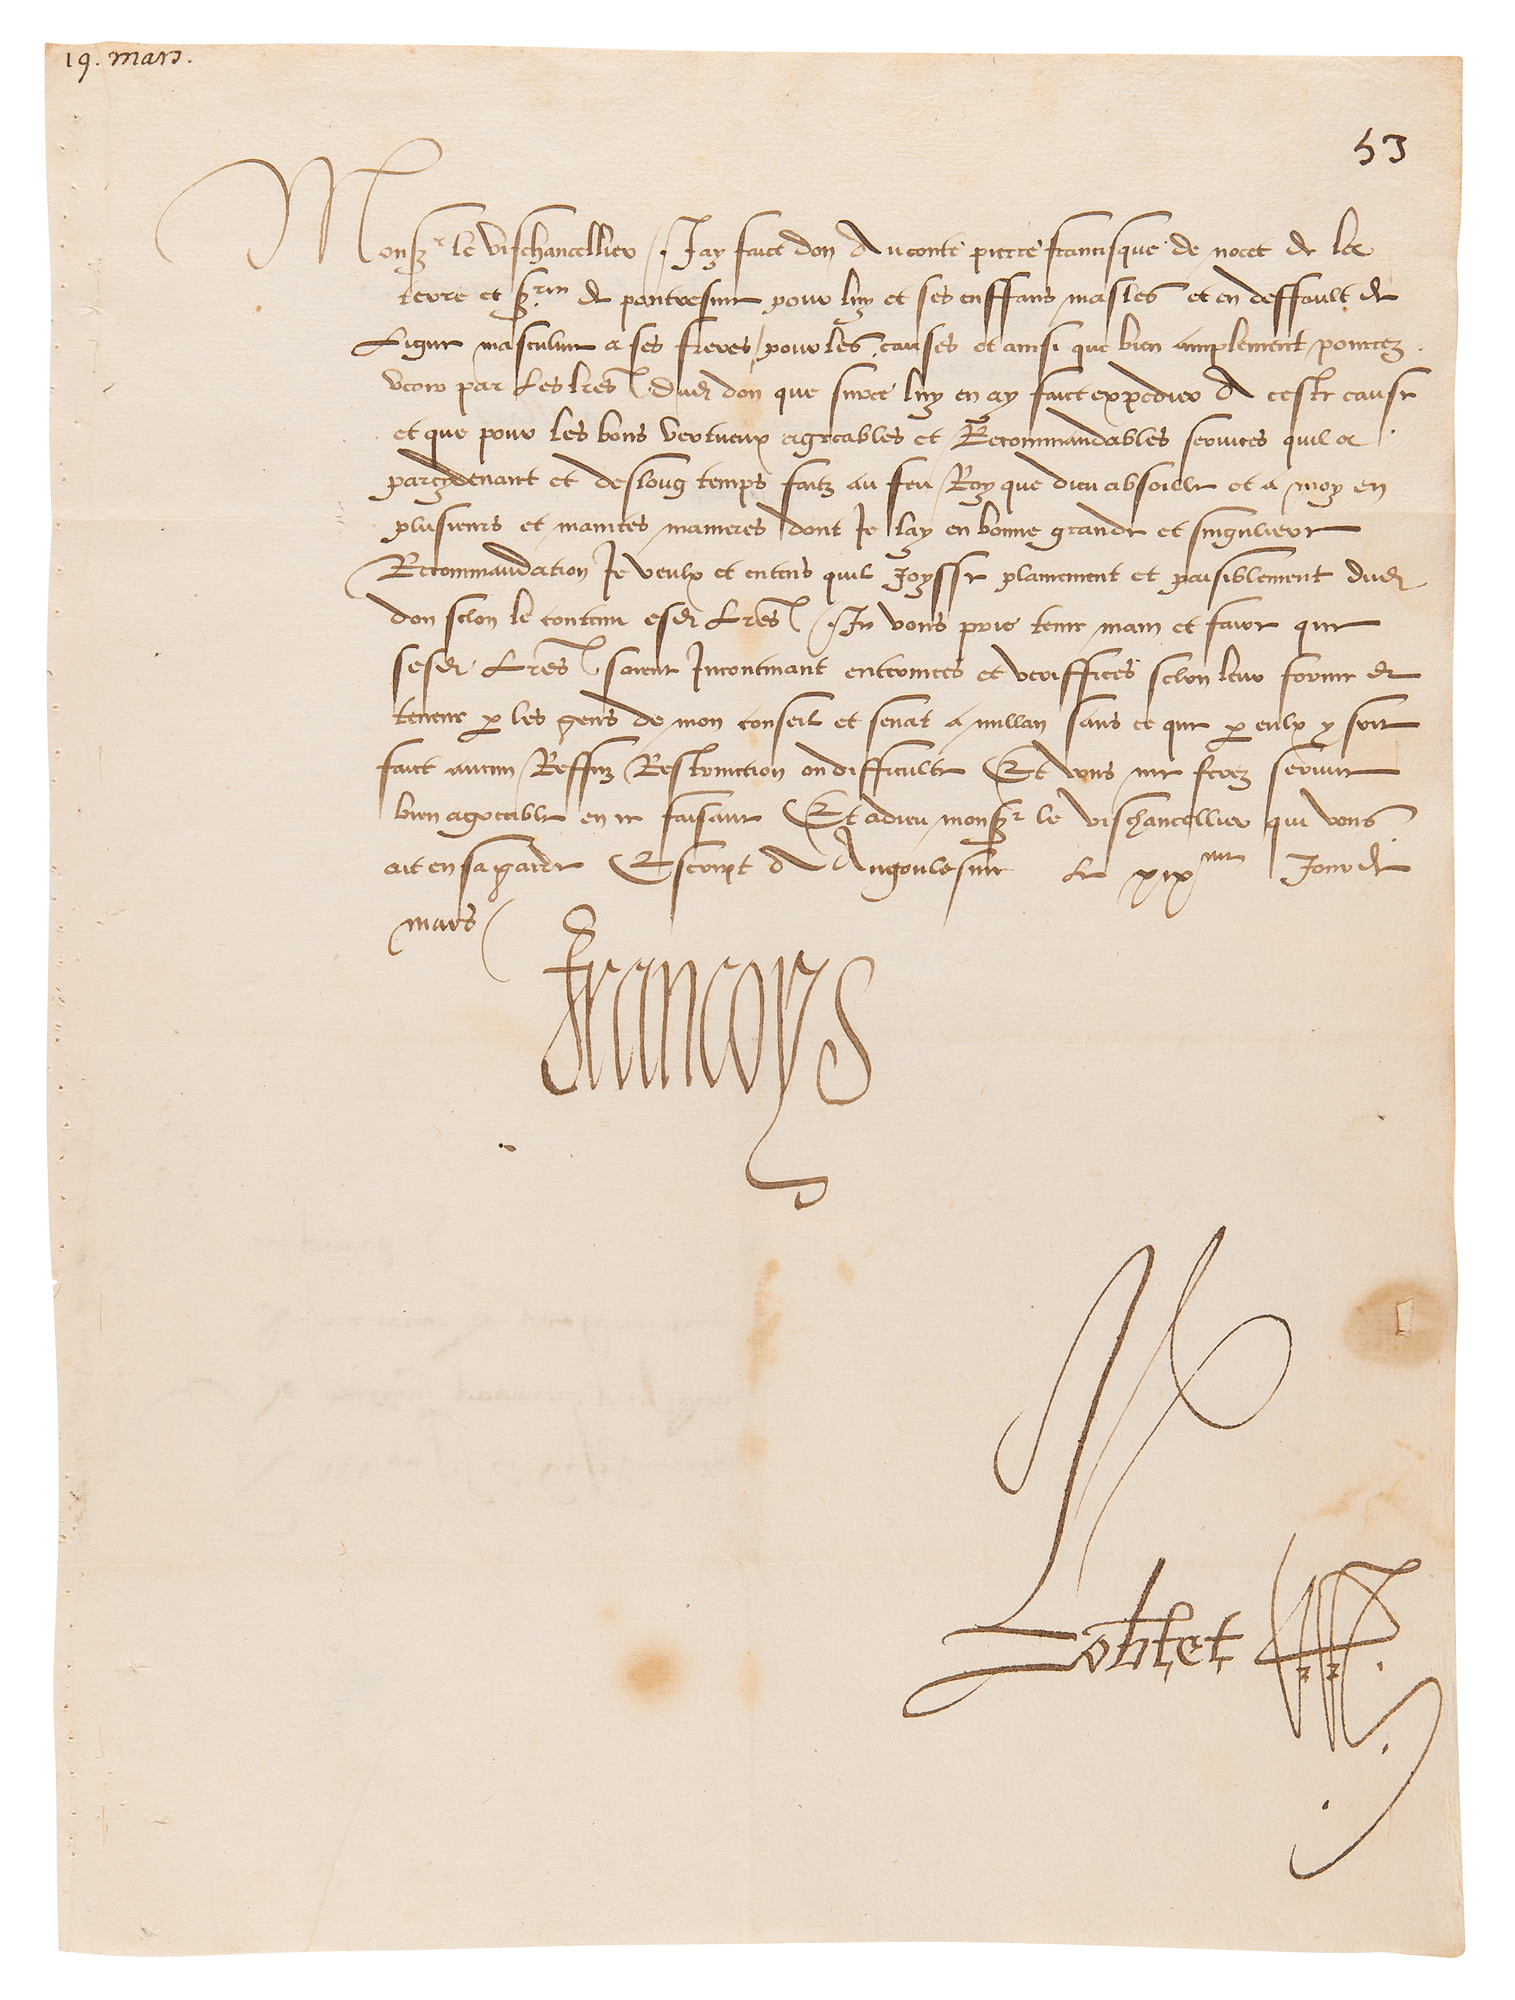 19. mars.
53
Monsr le vischancellier / Jay faict don Au conte pierre francisque de nocet de la
terre et sgrie de pontresme pour luy et ses enffans masles et en deffault de
Ligne masculine a ses freres / pour les causes et ainsi que bien amplement pourrez
veoir par Les lres dud don que surce luy en ay faict expedier A ceste cause
et que pour les bons vertueux agreables et Recommandables services quil a
parcydevant et deslong temps faitz au feu Roy que dieu absoille et a moy en
plusieurs et maintes manieres dont Je lay en bonne grande et singuliere
Recommandation Je veulx et entens quil Joysse plainement et paisiblement dud
don selon le contenu esd Lres / Je vous prie tenir main et faire que
sesd Lres soient Incontinant enterinees et veriffiees selon leur forme et
teneur p les gens de mon conseil et senat a millan sans ce que p eulx y soit
faict aucun Reffuz Restrinction ou difficulte Et vous me ferez service
bien agreable en ce faisant Et adieu monsr le vischancellier qui vous
ait en sa garde Escript A Angoulesme Le xixme Jour de
mars
Francoys
Robtet